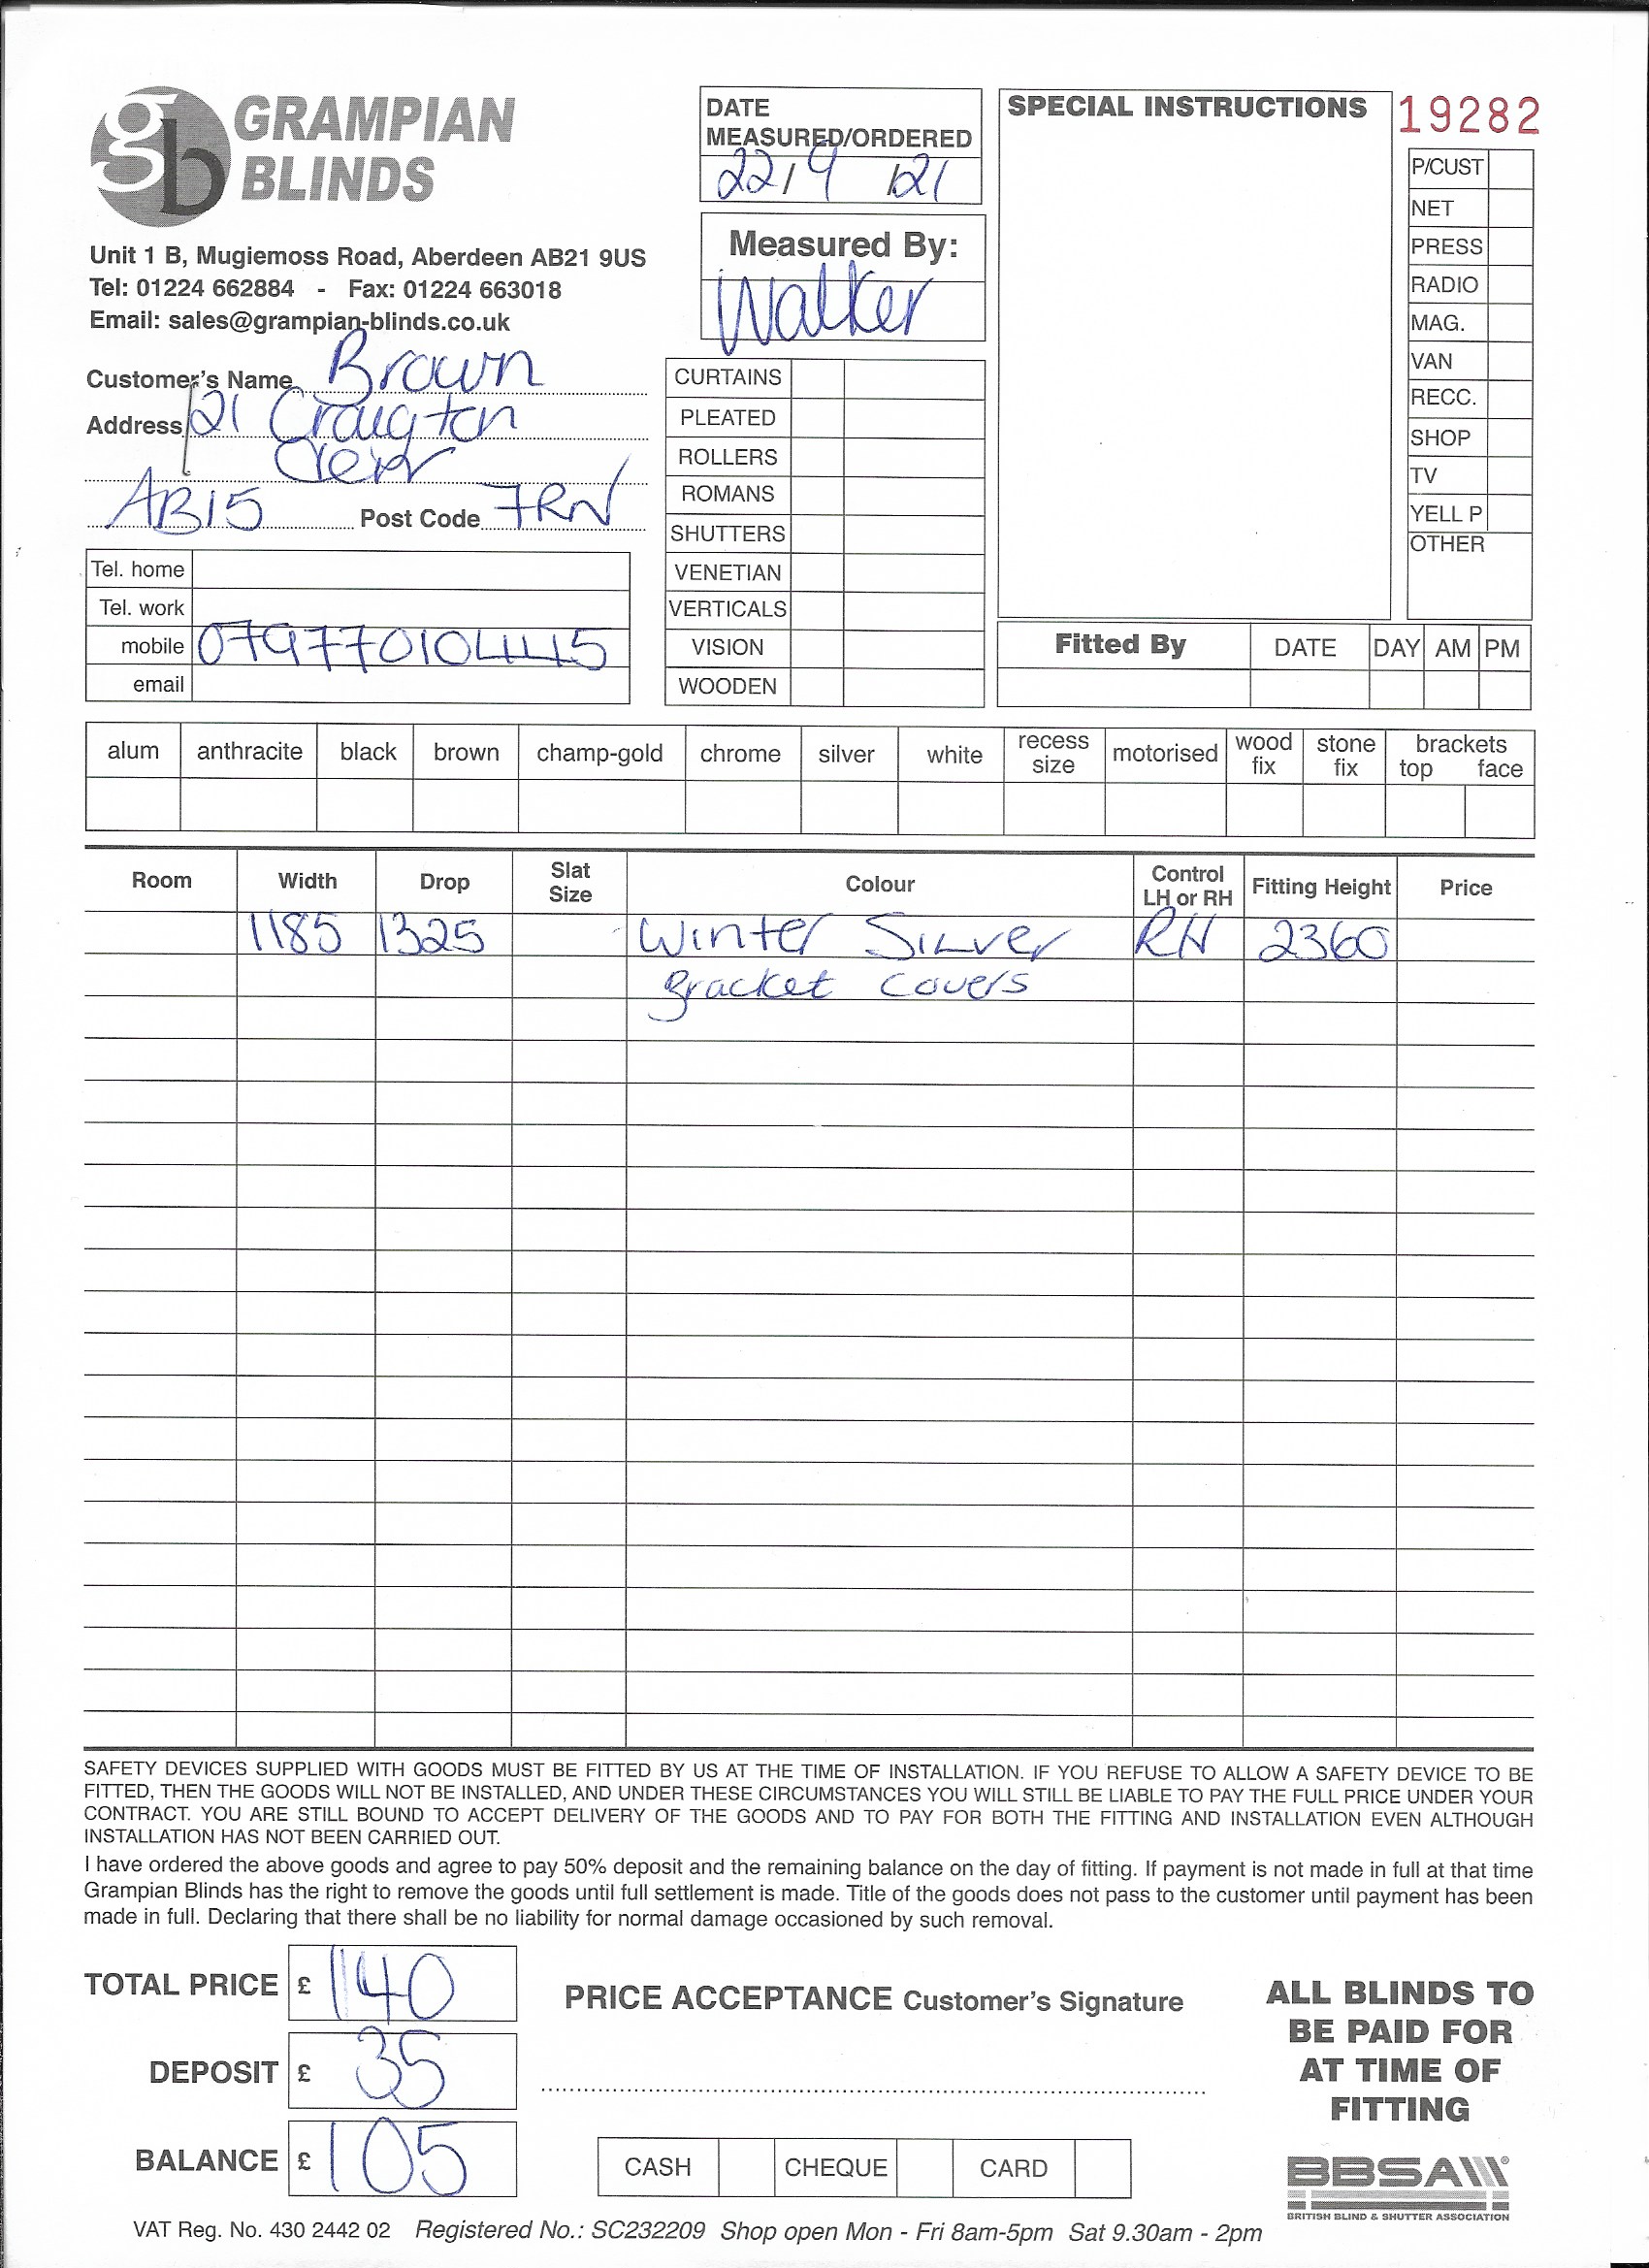 gb GRAMPIAN
BLINDS
Unit 1 B, Mugiemoss Road, Aberdeen AB21 9US
Tel: 01224 662884 - Fax: 01224 663018
Email: sales@grampian-blinds.co.uk
Customer's Name Brown
Address 21 Craigton
AB15 Post Code 7RN
Tel. home
Tel. work
mobile 079770104445
email
DATE
MEASURED/ORDERED
22/9/21
Measured By:
Walker
CURTAINS
PLEATED
ROLLERS
ROMANS
SHUTTERS
VENETIAN
VERTICALS
VISION
WOODEN
SPECIAL INSTRUCTIONS
19282
P/CUST
NET
PRESS
RADIO
MAG.
VAN
RECC.
SHOP
TV
YELL P
OTHER
Fitted By DATE DAY AM PM
alum anthracite black brown champ-gold chrome silver white recess size motorised wood fix stone fix brackets top face
Room Width Drop Slat Size Colour Control LH or RH Fitting Height Price
1185 1325 Winter Silver RH 2360
Bracket Covers
SAFETY DEVICES SUPPLIED WITH GOODS MUST BE FITTED BY US AT THE TIME OF INSTALLATION. IF YOU REFUSE TO ALLOW A SAFETY DEVICE TO BE
FITTED, THEN THE GOODS WILL NOT BE INSTALLED, AND UNDER THESE CIRCUMSTANCES YOU WILL STILL BE LIABLE TO PAY THE FULL PRICE UNDER YOUR
CONTRACT. YOU ARE STILL BOUND TO ACCEPT DELIVERY OF THE GOODS AND TO PAY FOR BOTH THE FITTING AND INSTALLATION EVEN ALTHOUGH
INSTALLATION HAS NOT BEEN CARRIED OUT.
I have ordered the above goods and agree to pay 50% deposit and the remaining balance on the day of fitting. If payment is not made in full at that time
Grampian Blinds has the right to remove the goods until full settlement is made. Title of the goods does not pass to the customer until payment has been
made in full. Declaring that there shall be no liability for normal damage occasioned by such removal.
TOTAL PRICE £ 140
DEPOSIT £ 35
BALANCE £ 105
PRICE ACCEPTANCE Customer's Signature
CASH CHEQUE CARD
ALL BLINDS TO
BE PAID FOR
AT TIME OF
FITTING
BBSA
BRITISH BLIND & SHUTTER ASSOCIATION
VAT Reg. No. 430 2442 02 Registered No.: SC232209 Shop open Mon - Fri 8am-5pm Sat 9.30am - 2pm